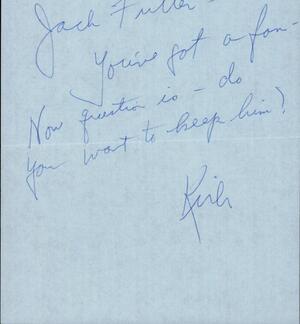 Jack Fuller -
You've got a fan -
Now question is - do
you want to keep him?
Kirk